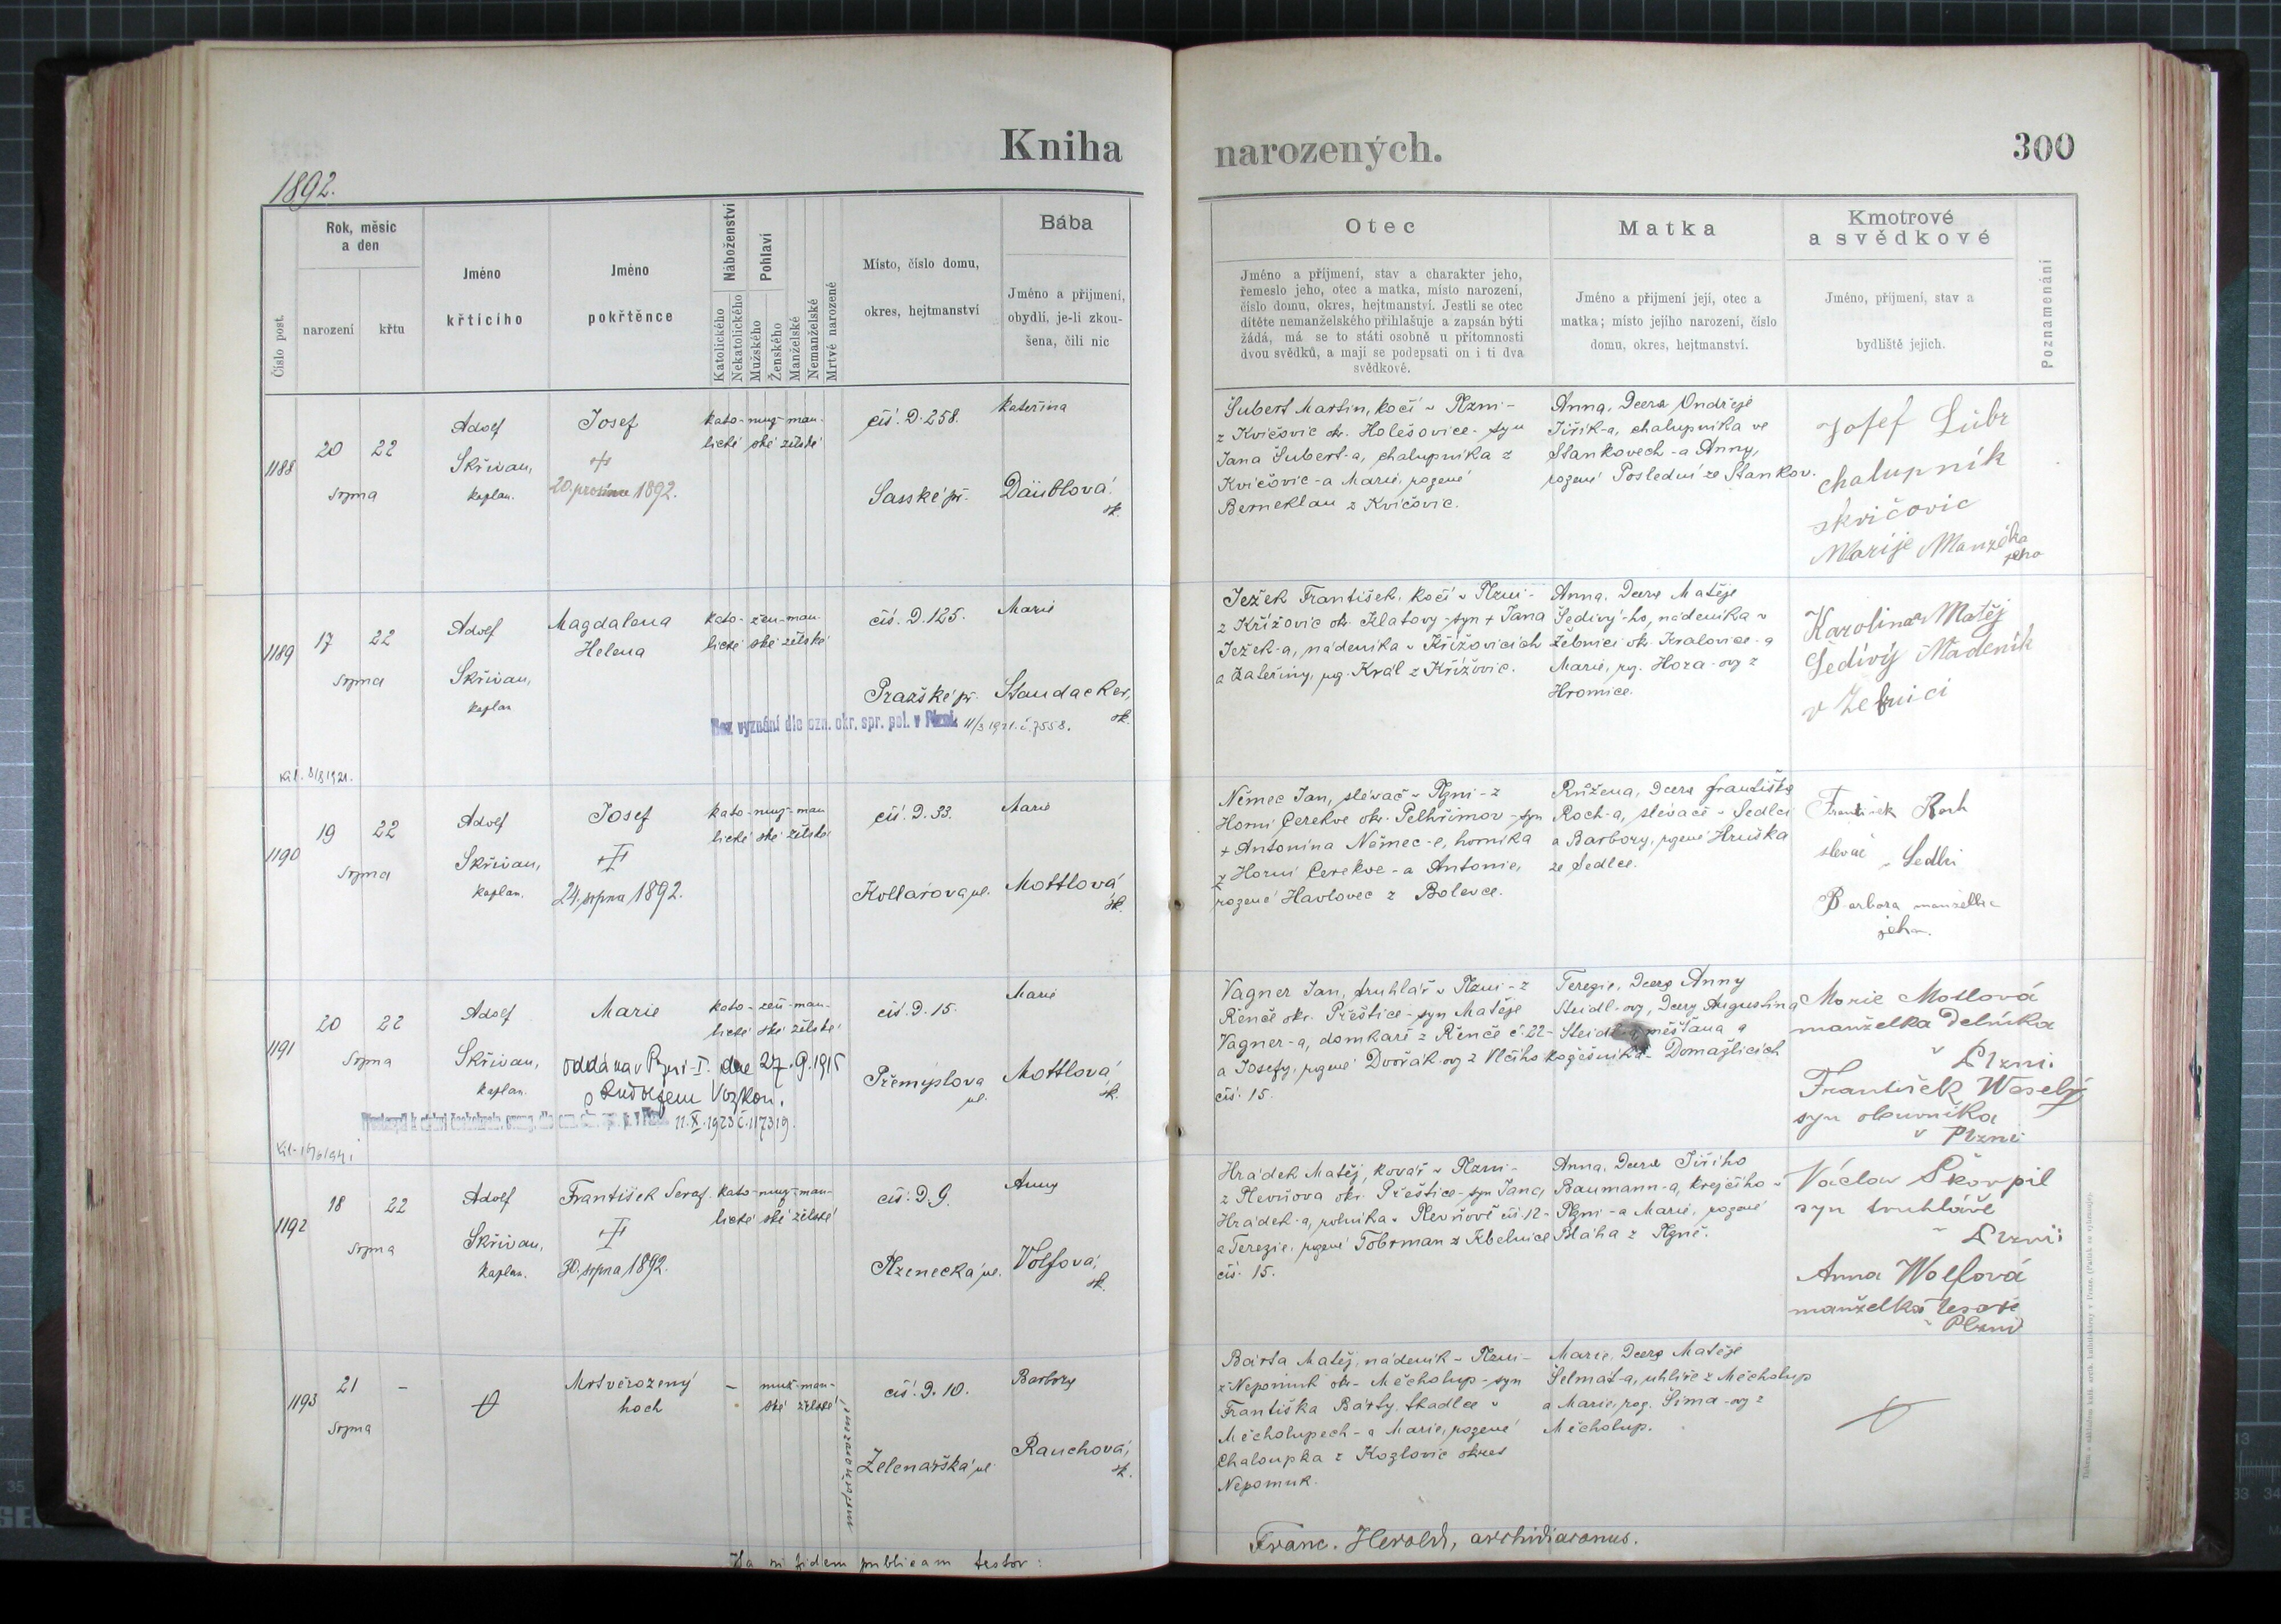 Kniha
narozených.
300
1892.
Číslo post.
Rok, měsíc
a den
narození
křtu
Jméno
křtícího
Jméno
pokřtěnce
Náboženství
Katolického
Nekatolického
Pohlaví
Mužského
Ženského
Manželské
Nemanželské
Mrtvě narozené
Místo, číslo domu,
okres, hejtmanství
Bába
Jméno a příjmení,
obydlí, je-li zkou-
šena, čili nic
Otec
Jméno a příjmení, stav a charakter jeho,
řemeslo jeho, otec a matka, místo narození,
číslo domu, okres, hejtmanství. Jestli se otec
dítěte nemanželského přihlašuje a zapsán býti
žádá, má se to státi osobně u přítomnosti
dvou svědků, a mají se podepsati on i ti dva
svědkové.
Matka
Jméno a příjmení její, otec a
matka; místo jejího narození, číslo
domu, okres, hejtmanství.
Kmotrové
a svědkové
Jméno, příjmení, stav a
bydliště jejich.
Poznamenání
1188
20 22
srpna
Adolf
Skřivan,
kaplan.
Josef
20. prosince 1892.
kato- muž- man-
lické ské želské
čís. D. 258.
Sasské př.
Kateřina
Däublová
zk.
Šubert Martin, kočí v Plzni -
z Kvíčovic ok. Holešovice - syn
Jana Šubert-a, chalupníka z
Kvíčovic - a Marie, rozené
Berneklau z Kvíčovic.
Anna, dcera Ondřeje
Jiřík-a, chalupníka ve
Stankovech - a Anny,
rozené Poslední ze Stankov.
Josef
chalupník
skvičovic
Marije Manželka
jeho
1189
17 22
srpna
Adolf
Skřivan,
kaplan
Magdalena
Helena
kato- žen- man-
lické ské želské
čís. D. 125.
Pražské př.
Marie
Standacher,
zk.
Bez vyznání dle ozn. okr. spr. pol. v Plzni 11/3 1921. č. 7558.
Ježek František, kočí v Plzni -
z Křížovic ok. Klatovy - syn + Jana
Ježek-a, nádeníka v Křížovicích
a Kateřiny, rog. Král z Křížovic.
Anna, dcera Matěje
Šedivý-ho, nádeníka v
Žebnici ok. Kralovice - a
Marie, rog. Hora-ovy z
Hromice.
Karolina Matěj
Šedivý Nádeník
v Žebnici
1190
19 22
srpna
Adolf
Skřivan,
kaplan.
Josef
24. srpna 1892.
kato- muž- man
lické ské želské
čís. D. 33.
Kollárova ul.
Marie
Mottlová
zk.
Němec Jan, slévač v Plzni - z
Horní Cerekve okr. Pelhřimov - syn
+ Antonína Němec-e, horníka
z Horní Cerekve - a Antonie,
rozené Havlovec z Bolevce.
Růžena, dcera Františka
Roch-a, slévače v Sedlci
a Barbory, rozené Hruška
ze Sedlce.
František Roch
slevač v Sedlci
Barbora manželka
jeho.
1191
20 22
srpna
Adolf
Skřivan,
kaplan.
Marie
oddána v Plzni - I. dne 27. 9. 1915
s Rudolfem
11. X. 1923 č. 117319.
kato- žen- man-
lické ské želské
čís. D. 15.
Přemyslova
ul.
Marie
Mottlová
zk.
Vagner Jan, truhlář v Plzni - z
Řenče okr. Přeštice - syn Matěje
Vagner-a, domkaře z Řenče č. 22 -
a Josefy, rozené Dvořák-ovy z Vlčího
čís. 15.
Terezie, dcera Anny
Steidl-ovy, dcery Augustina
měšťana a
kožešníka v Domažlicích
Marie Motlová
manželka Delníka
v Plzni.
František Weselý
syn obuvníka
v Plzni
1192
18 22
srpna
Adolf
Skřivan,
kaplan.
František Seraf.
30. srpna 1892.
kato- muž- man-
lické ské želské
čís. D. 9.
Plzenecká ul.
Anny
Volfová,
zk.
Hrádek Matěj, kovář v Plzni -
z Plevňova okr. Přeštice - syn Jana
Hrádek-a, rolníka v Plevňově čís. 12 -
a Terezie, rozené Tobrman z Kbelnice
čís. 15.
Anna, dcera Jiřího
Baumann-a, krejčího v
Plzni - a Marie, rozené
Bláha z Plzně.
Václav Škorpil
syn truhláře
v Plzni
Anna Wolfová
manželka tesaře
v Plzni
1193
21 -
srpna
Mrtvěrozený
hoch
- muž- man-
ské želské
mrtvěnarozené
čís. D. 10.
Zelenářská ul.
Barbory
Rauchová,
zk.
Bárta Matěj, nádeník v Plzni -
z Nepomuk ok. Měcholup - syn
Františka Bárty, tkadlce v
Měcholupech - a Marie, rozené
Chaloupka z Kozlovic okres
Nepomuk.
Marie, dcera Matěje
Šelmát-a, uhlíře z Měcholup
a Marie, roz. Šíma-ovy z
Měcholup.
Ita in fidem publicam testor:
Franc. Herold, archidiaconus.